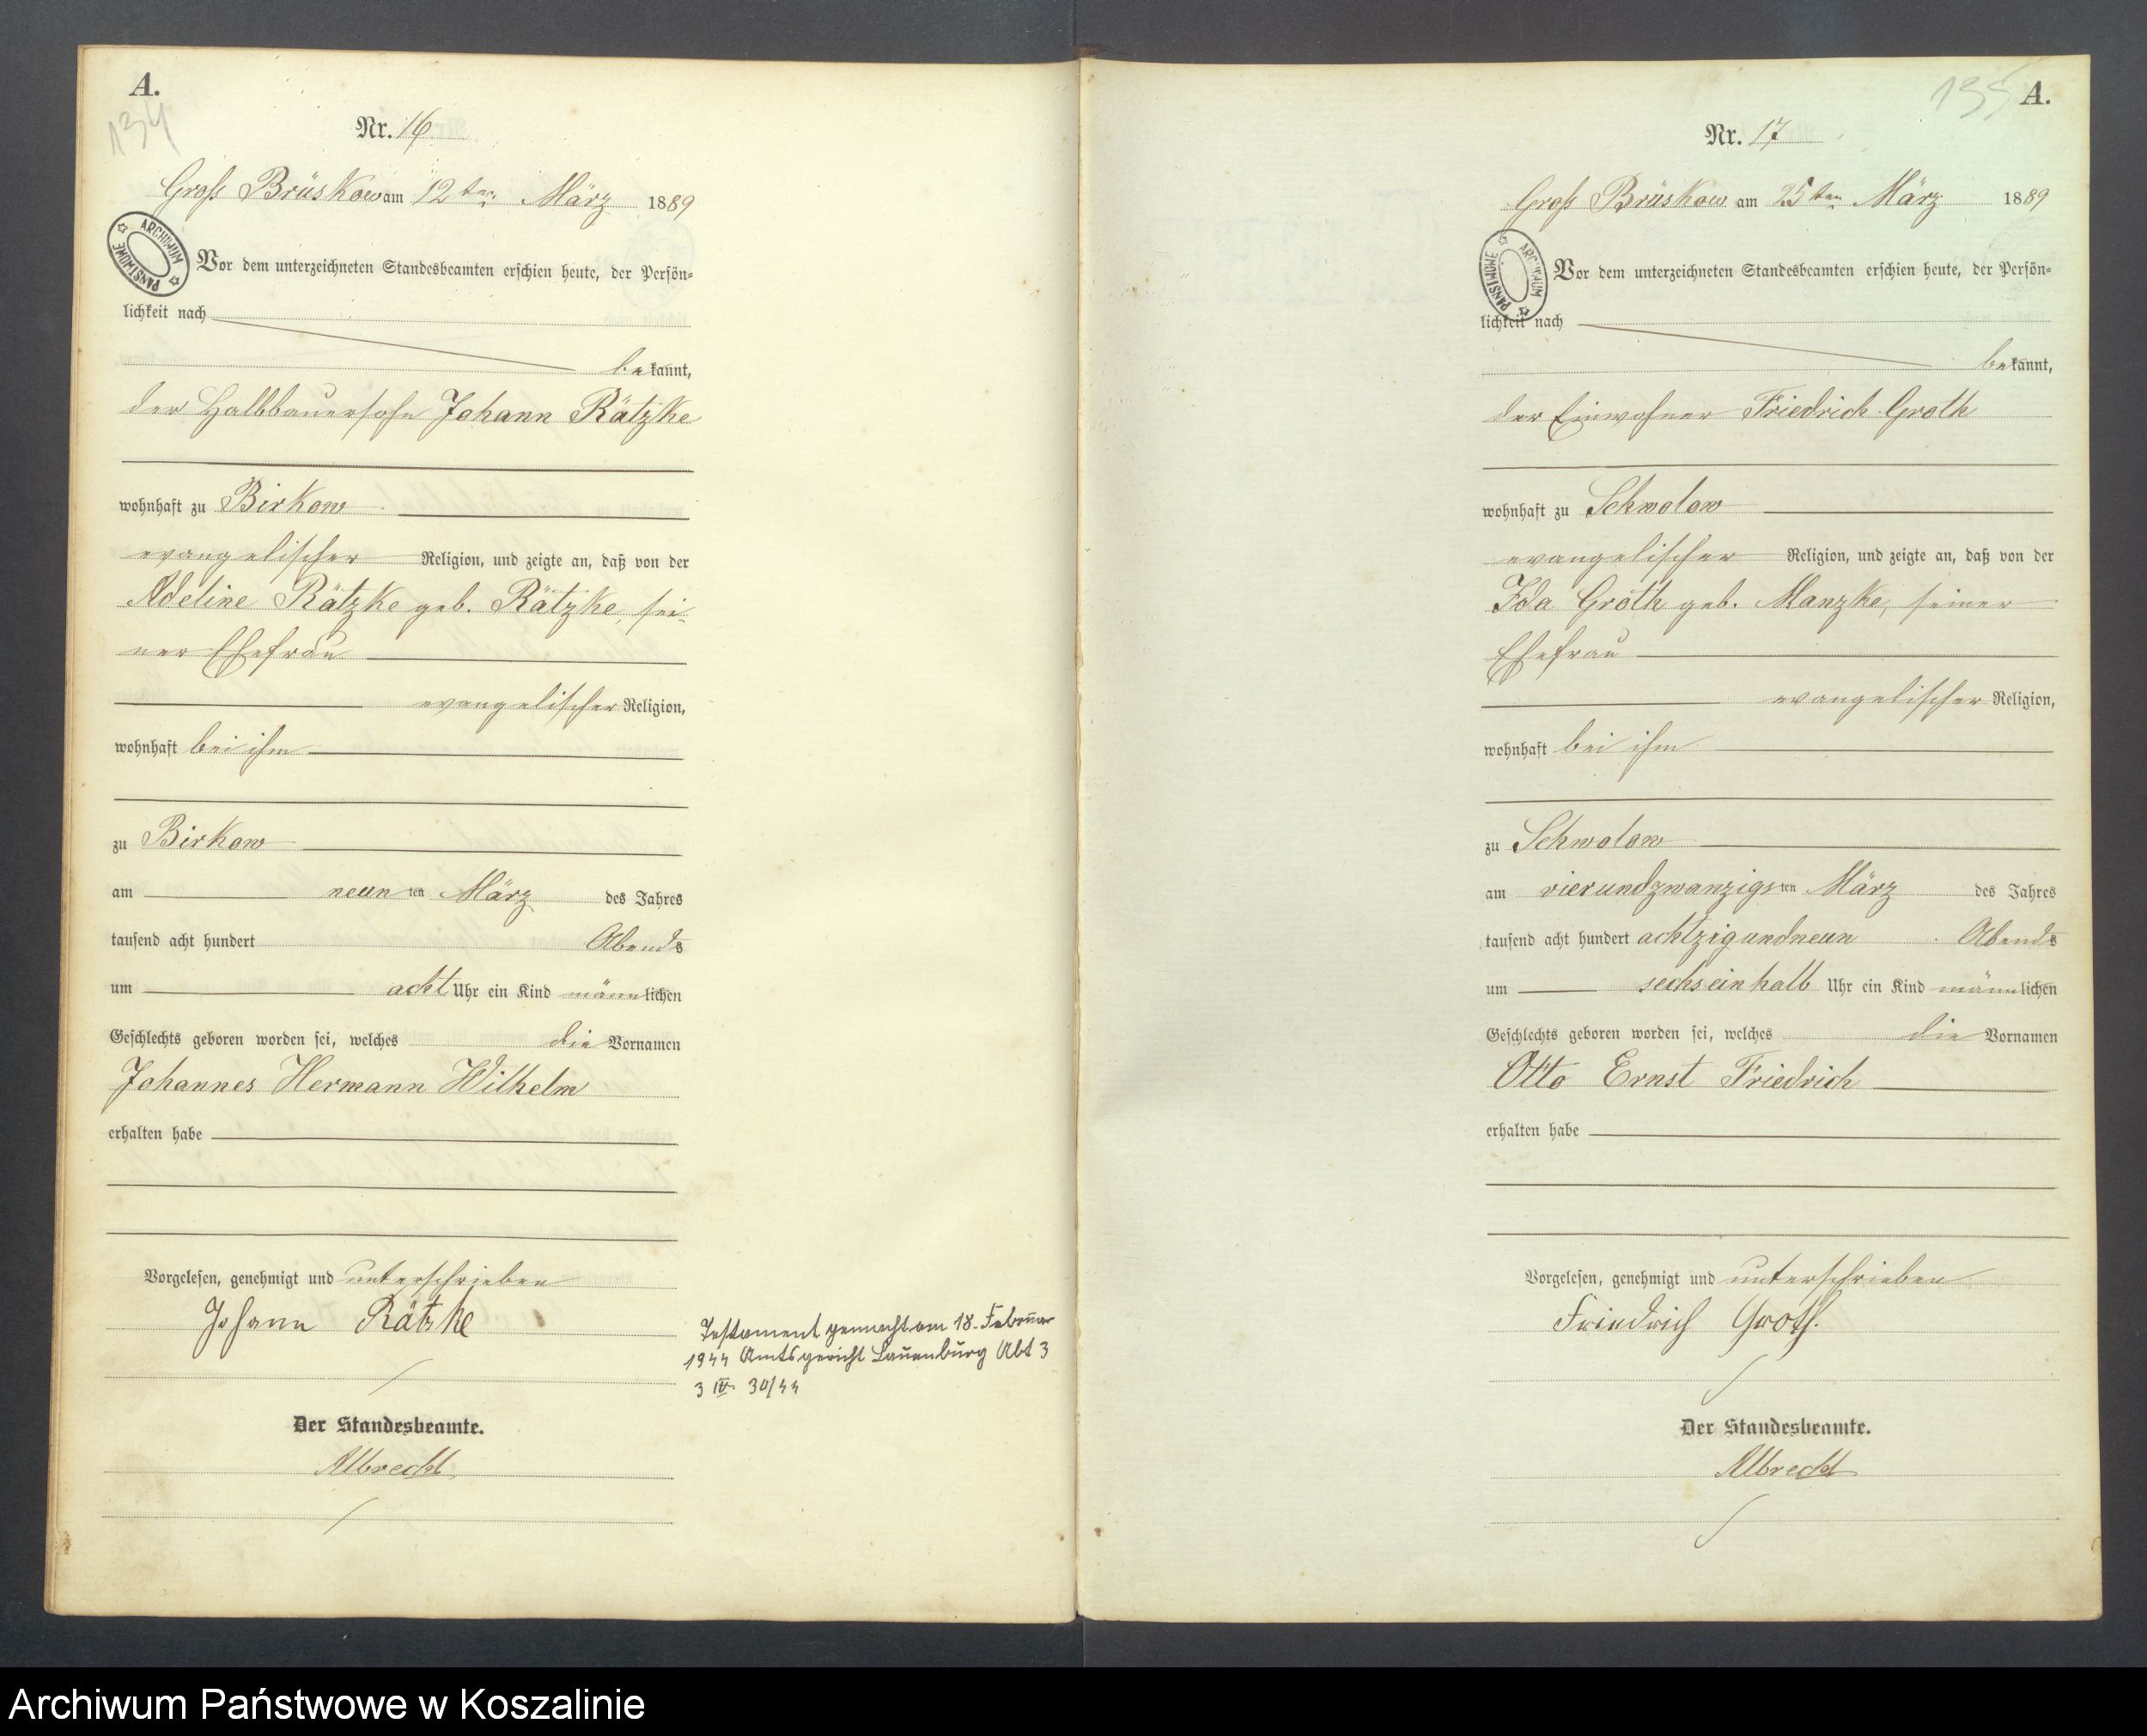 A.
134
Nr. 16
Groß Brüskow am 12ten März 1889
ARCHIWUM PAŃSTWOWE
Vor dem unterzeichneten Standesbeamten erschien heute, der Persön=
lichkeit nach
bekannt,
der Halbbauersohn Johann Rätzke
wohnhaft zu Birkow
evangelischer Religion, und zeigte an, daß von der
Adeline Rätzke geb. Rätzke, sei-
ner Ehefrau
evangelischer Religion,
wohnhaft bei ihm
zu Birkow
am neunten März des Jahres
tausend acht hundert Abends
um acht Uhr ein Kind männlichen
Geschlechts geboren worden sei, welches die Vornamen
Johannes Hermann Wilhelm
erhalten habe
Vorgelesen, genehmigt und unterschrieben
Johann Rätzke
Testament gemacht am 18. Februar
1944 Amtsgericht Lauenburg Abt 3
3 IV. 30/44
Der Standesbeamte.
Albrecht
135
A.
Nr. 17
Groß Brüskow am 25ten März 1889
ARCHIWUM PAŃSTWOWE
Vor dem unterzeichneten Standesbeamten erschien heute, der Persön=
lichkeit nach
bekannt,
der Einwohner Friedrich Groth
wohnhaft zu Schwolow
evangelischer Religion, und zeigte an, daß von der
Ida Groth geb. Manzke, seiner
Ehefrau
evangelischer Religion,
wohnhaft bei ihm
zu Schwolow
am vierundzwanzigsten März des Jahres
tausend acht hundert achtzigundneun Abends
um sechseinhalb Uhr ein Kind männlichen
Geschlechts geboren worden sei, welches die Vornamen
Otto Ernst Friedrich
erhalten habe
Vorgelesen, genehmigt und unterschrieben
Friedrich Groth.
Der Standesbeamte.
Albrecht
Archiwum Państwowe w Koszalinie